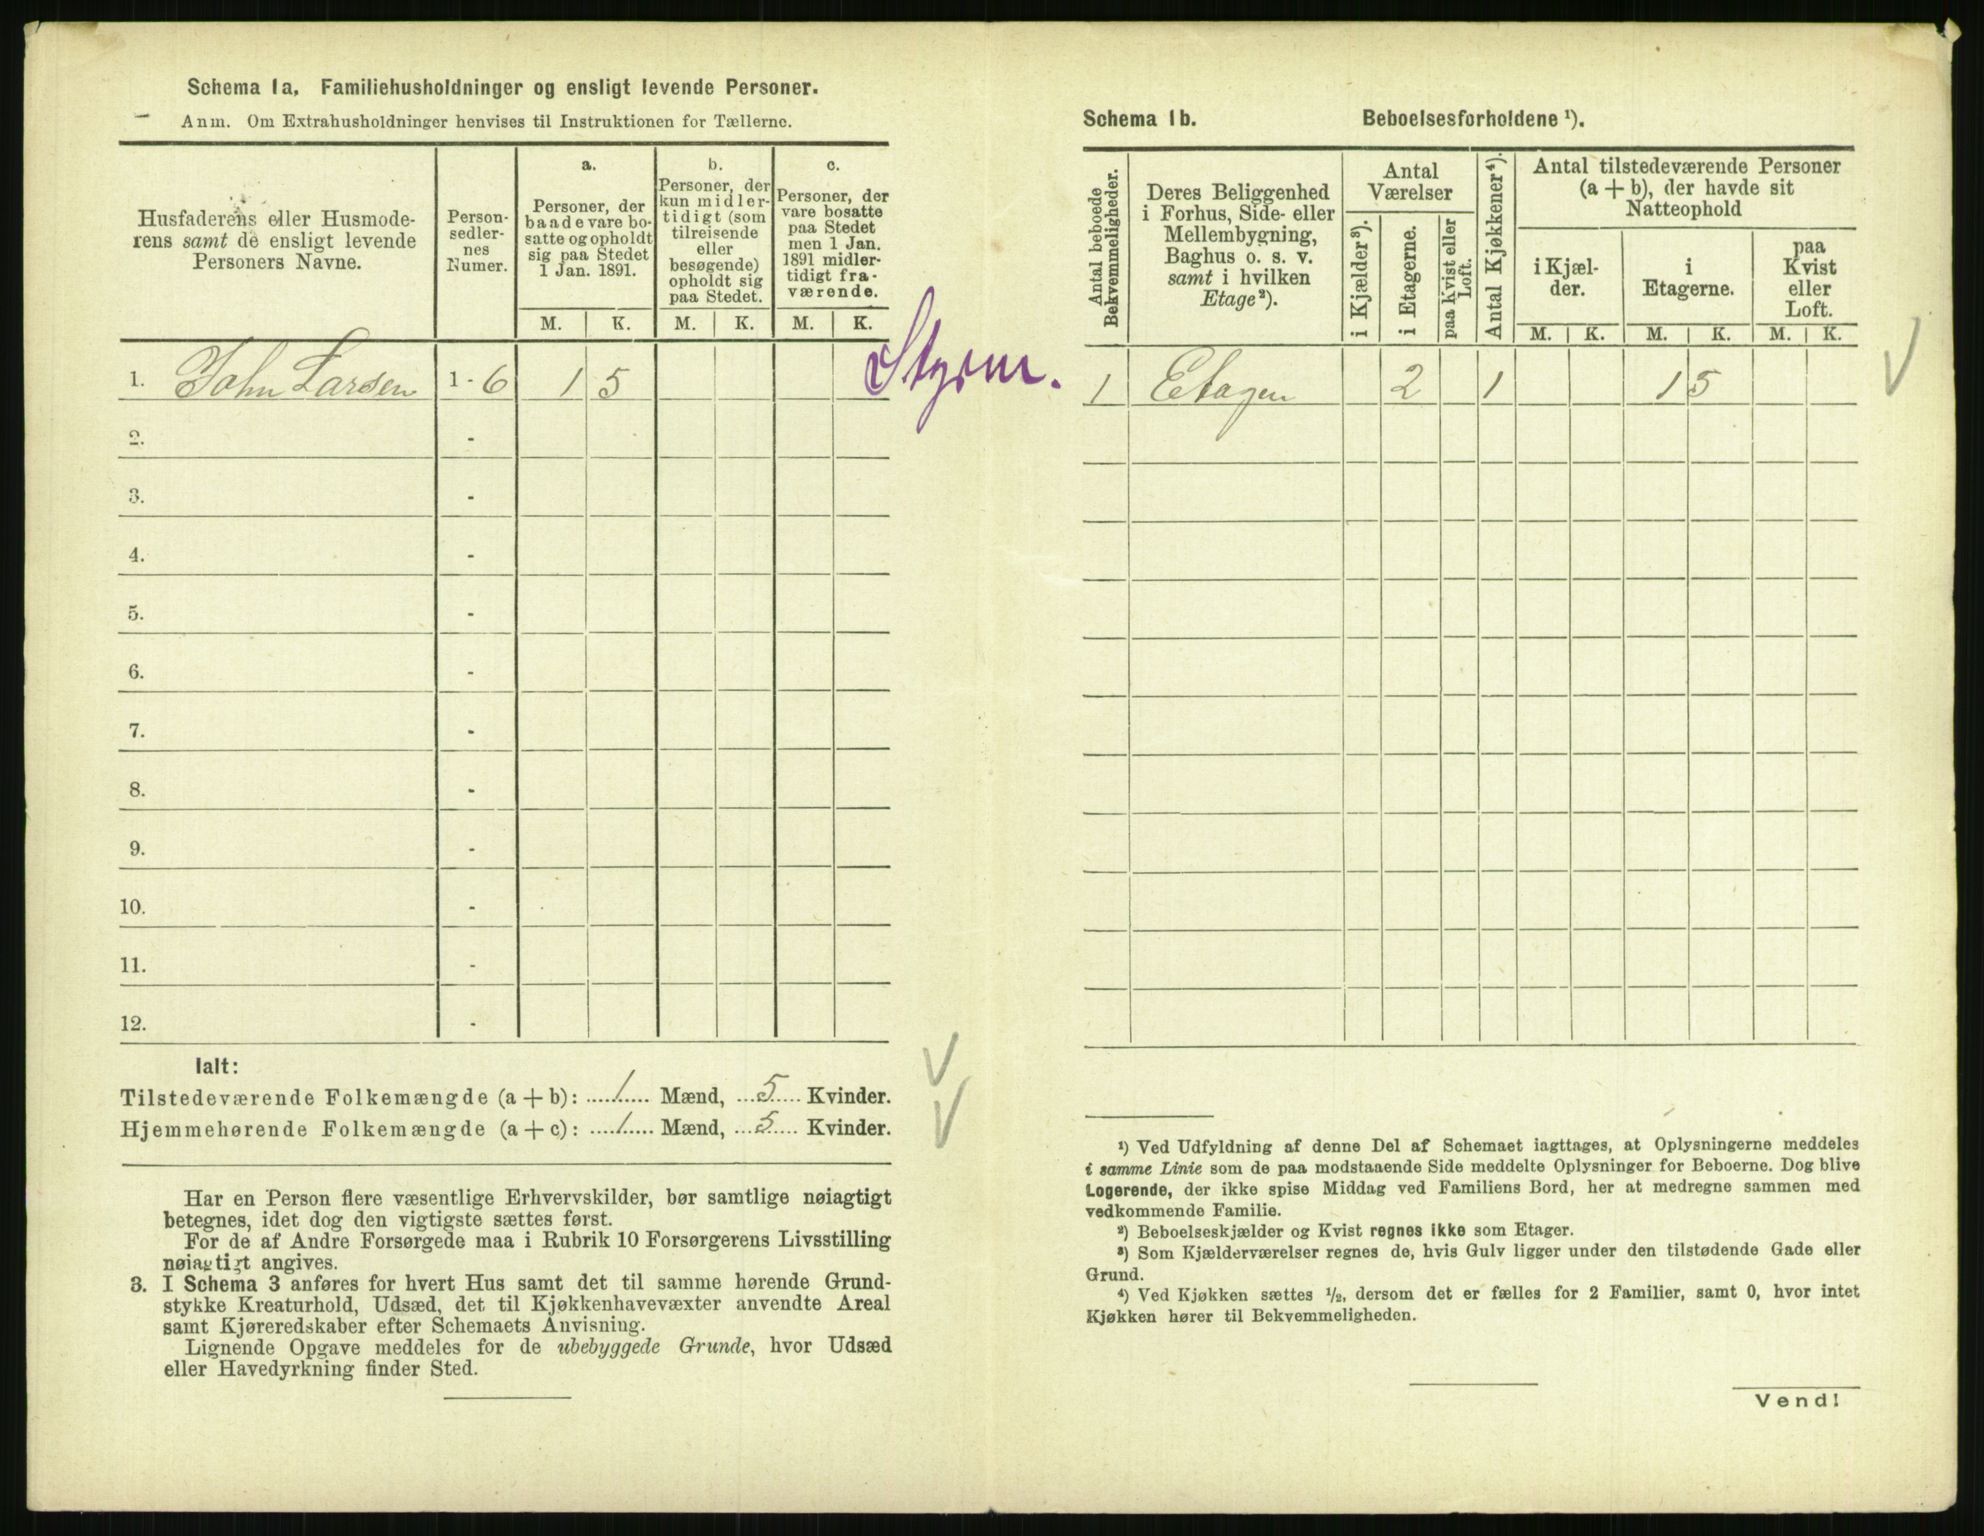 Schema 1a. Familiehusholdninger og ensligt levende Personer.
Anm. Om Extrahusholdninger henvises til Instruktionen for Tællerne.
Husfaderens eller Husmode-
rens samt de ensligt levende
Personers Navne.
Person-
sedler-
nes
Numer.
a.
Personer, der
baade vare bo-
satte og opholdt
sig paa Stedet
1 Jan. 1891.
b.
Personer, der
kun midler-
tidigt (som
tilreisende
eller
besøgende)
opholdt sig
paa Stedet.
c.
Personer, der
vare bosatte
paa Stedet
men 1 Jan.
1891 midler-
tidigt fra-
værende.
M. K. M. K. M. K.
1. John Larsen 1 - 6 1 5
Styrm.
2. -
3. -
4. -
5. -
6. -
7. -
8. -
9. -
10. -
11. -
12. -
Ialt:
Tilstedeværende Folkemængde (a + b): 1 Mænd, 5 Kvinder.
Hjemmehørende Folkemængde (a + c): 1 Mænd, 5 Kvinder.
Har en Person flere væsentlige Erhvervskilder, bør samtlige nøiagtigt
betegnes, idet dog den vigtigste sættes først.
For de af Andre Forsørgede maa i Rubrik 10 Forsørgerens Livsstilling
nøiagtigt angives.
3. I Schema 3 anføres for hvert Hus samt det til samme hørende Grund-
stykke Kreaturhold, Udsæd, det til Kjøkkenhavevæxter anvendte Areal
samt Kjøreredskaber efter Schemaets Anvisning.
Lignende Opgave meddeles for de ubebyggede Grunde, hvor Udsæd
eller Havedyrkning finder Sted.
Schema 1b. Beboelsesforholdene ¹).
Antal beboede
Bekvemmeligheder.
Deres Beliggenhed
i Forhus, Side- eller
Mellembygning,
Baghus o. s. v.
samt i hvilken
Etage²).
Antal
Værelser
i Kjælder³).
i Etagerne.
paa Kvist eller
Loft.
Antal Kjøkkener⁴).
Antal tilstedeværende Personer
(a + b), der havde sit
Natteophold
i Kjæl-
der.
i
Etagerne.
paa
Kvist
eller
Loft.
M. K. M. K. M. K.
1 Etagen 2 1 1 5
¹) Ved Udfyldning af denne Del af Schemaet iagttages, at Oplysningerne meddeles
i samme Linie som de paa modstaaende Side meddelte Oplysninger for Beboerne. Dog blive
Logerende, der ikke spise Middag ved Familiens Bord, her at medregne sammen med
vedkommende Familie.
²) Beboelseskjælder og Kvist regnes ikke som Etager.
³) Som Kjælderværelser regnes de, hvis Gulv ligger under den tilstødende Gade eller
Grund.
⁴) Ved Kjøkken sættes ½, dersom det er fælles for 2 Familier, samt 0, hvor intet
Kjøkken hører til Bekvemmeligheden.
Vend!